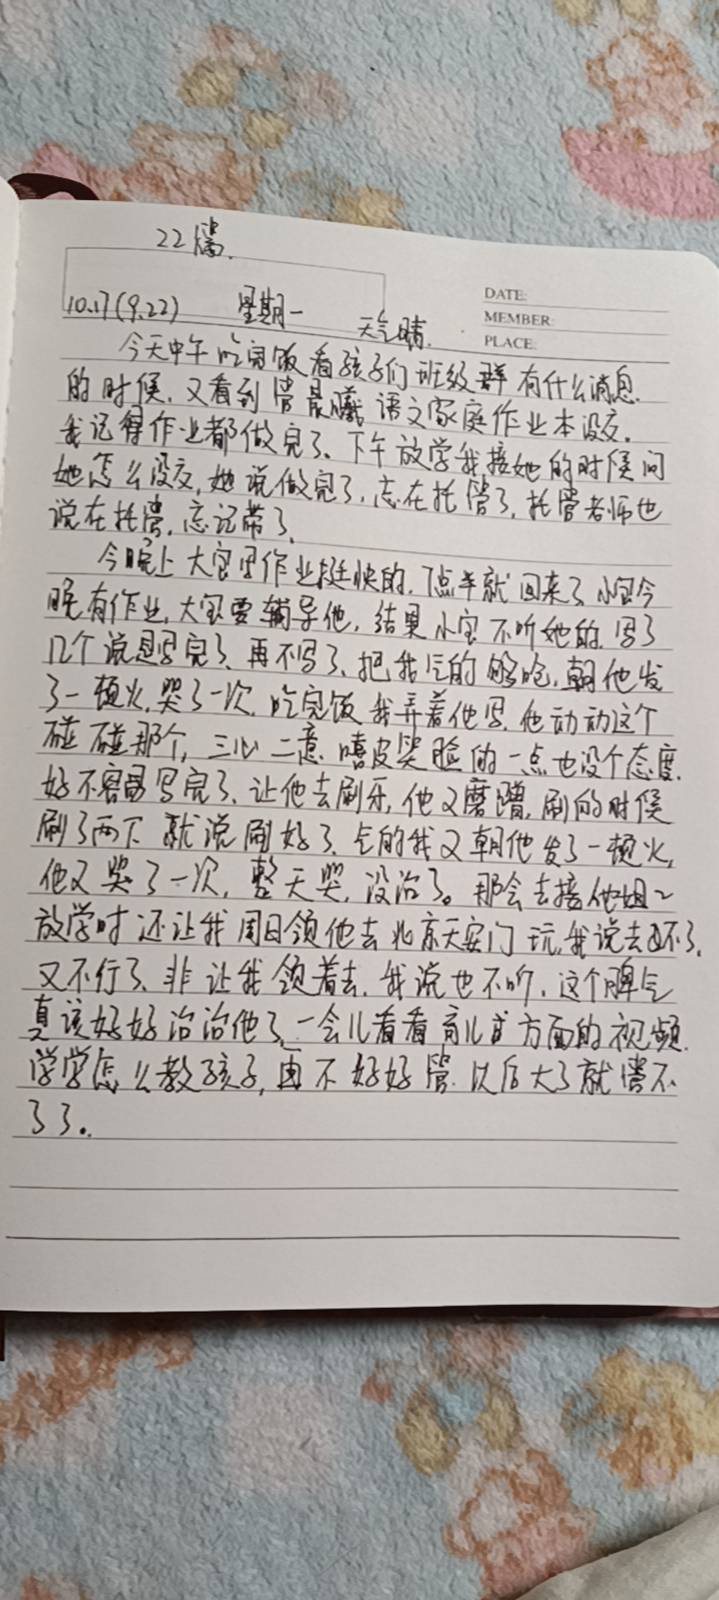 22篇.
DATE:
10.17(9.22) 星期一 天气晴.
MEMBER:
PLACE:
今天中午吃完饭看孩子们班级群有什么消息.
的时候,又看到晨曦语文家庭作业本没交.
我记得作业都做完了、下午放学我接她的时候问
她怎么没交,她说做完了,忘在托管了,托管老师也
说在托管,忘记带了.
今晚上大宝写作业挺快的,7点半就回来了小宝今
晚有作业,大宝要辅导他,结果小宝不听她的.写了
几个说是写完了、再不写了、把我气的够呛,朝他发
了一顿火,哭了一次,吃完饭我弄着他写,他动动这个
碰碰那个,三心二意.嘻皮笑脸的一点也没个态度.
好不容易写完了、让他去刷牙,他又磨蹭,刷的时候
刷了两下就说刷好了、气的我又朝他发了一顿火,
他又哭了一次,整天哭,没治了。那会去接他姐~
放学时还让我周日领他去北京天安门玩,我说去不了,
又不行了、非让我领着去.我说也不听,这个脾气
真该好好治治他了、一会儿看看育儿方面的视频.
学学怎么教孩子,再不好好管.以后大了就管不
了了。